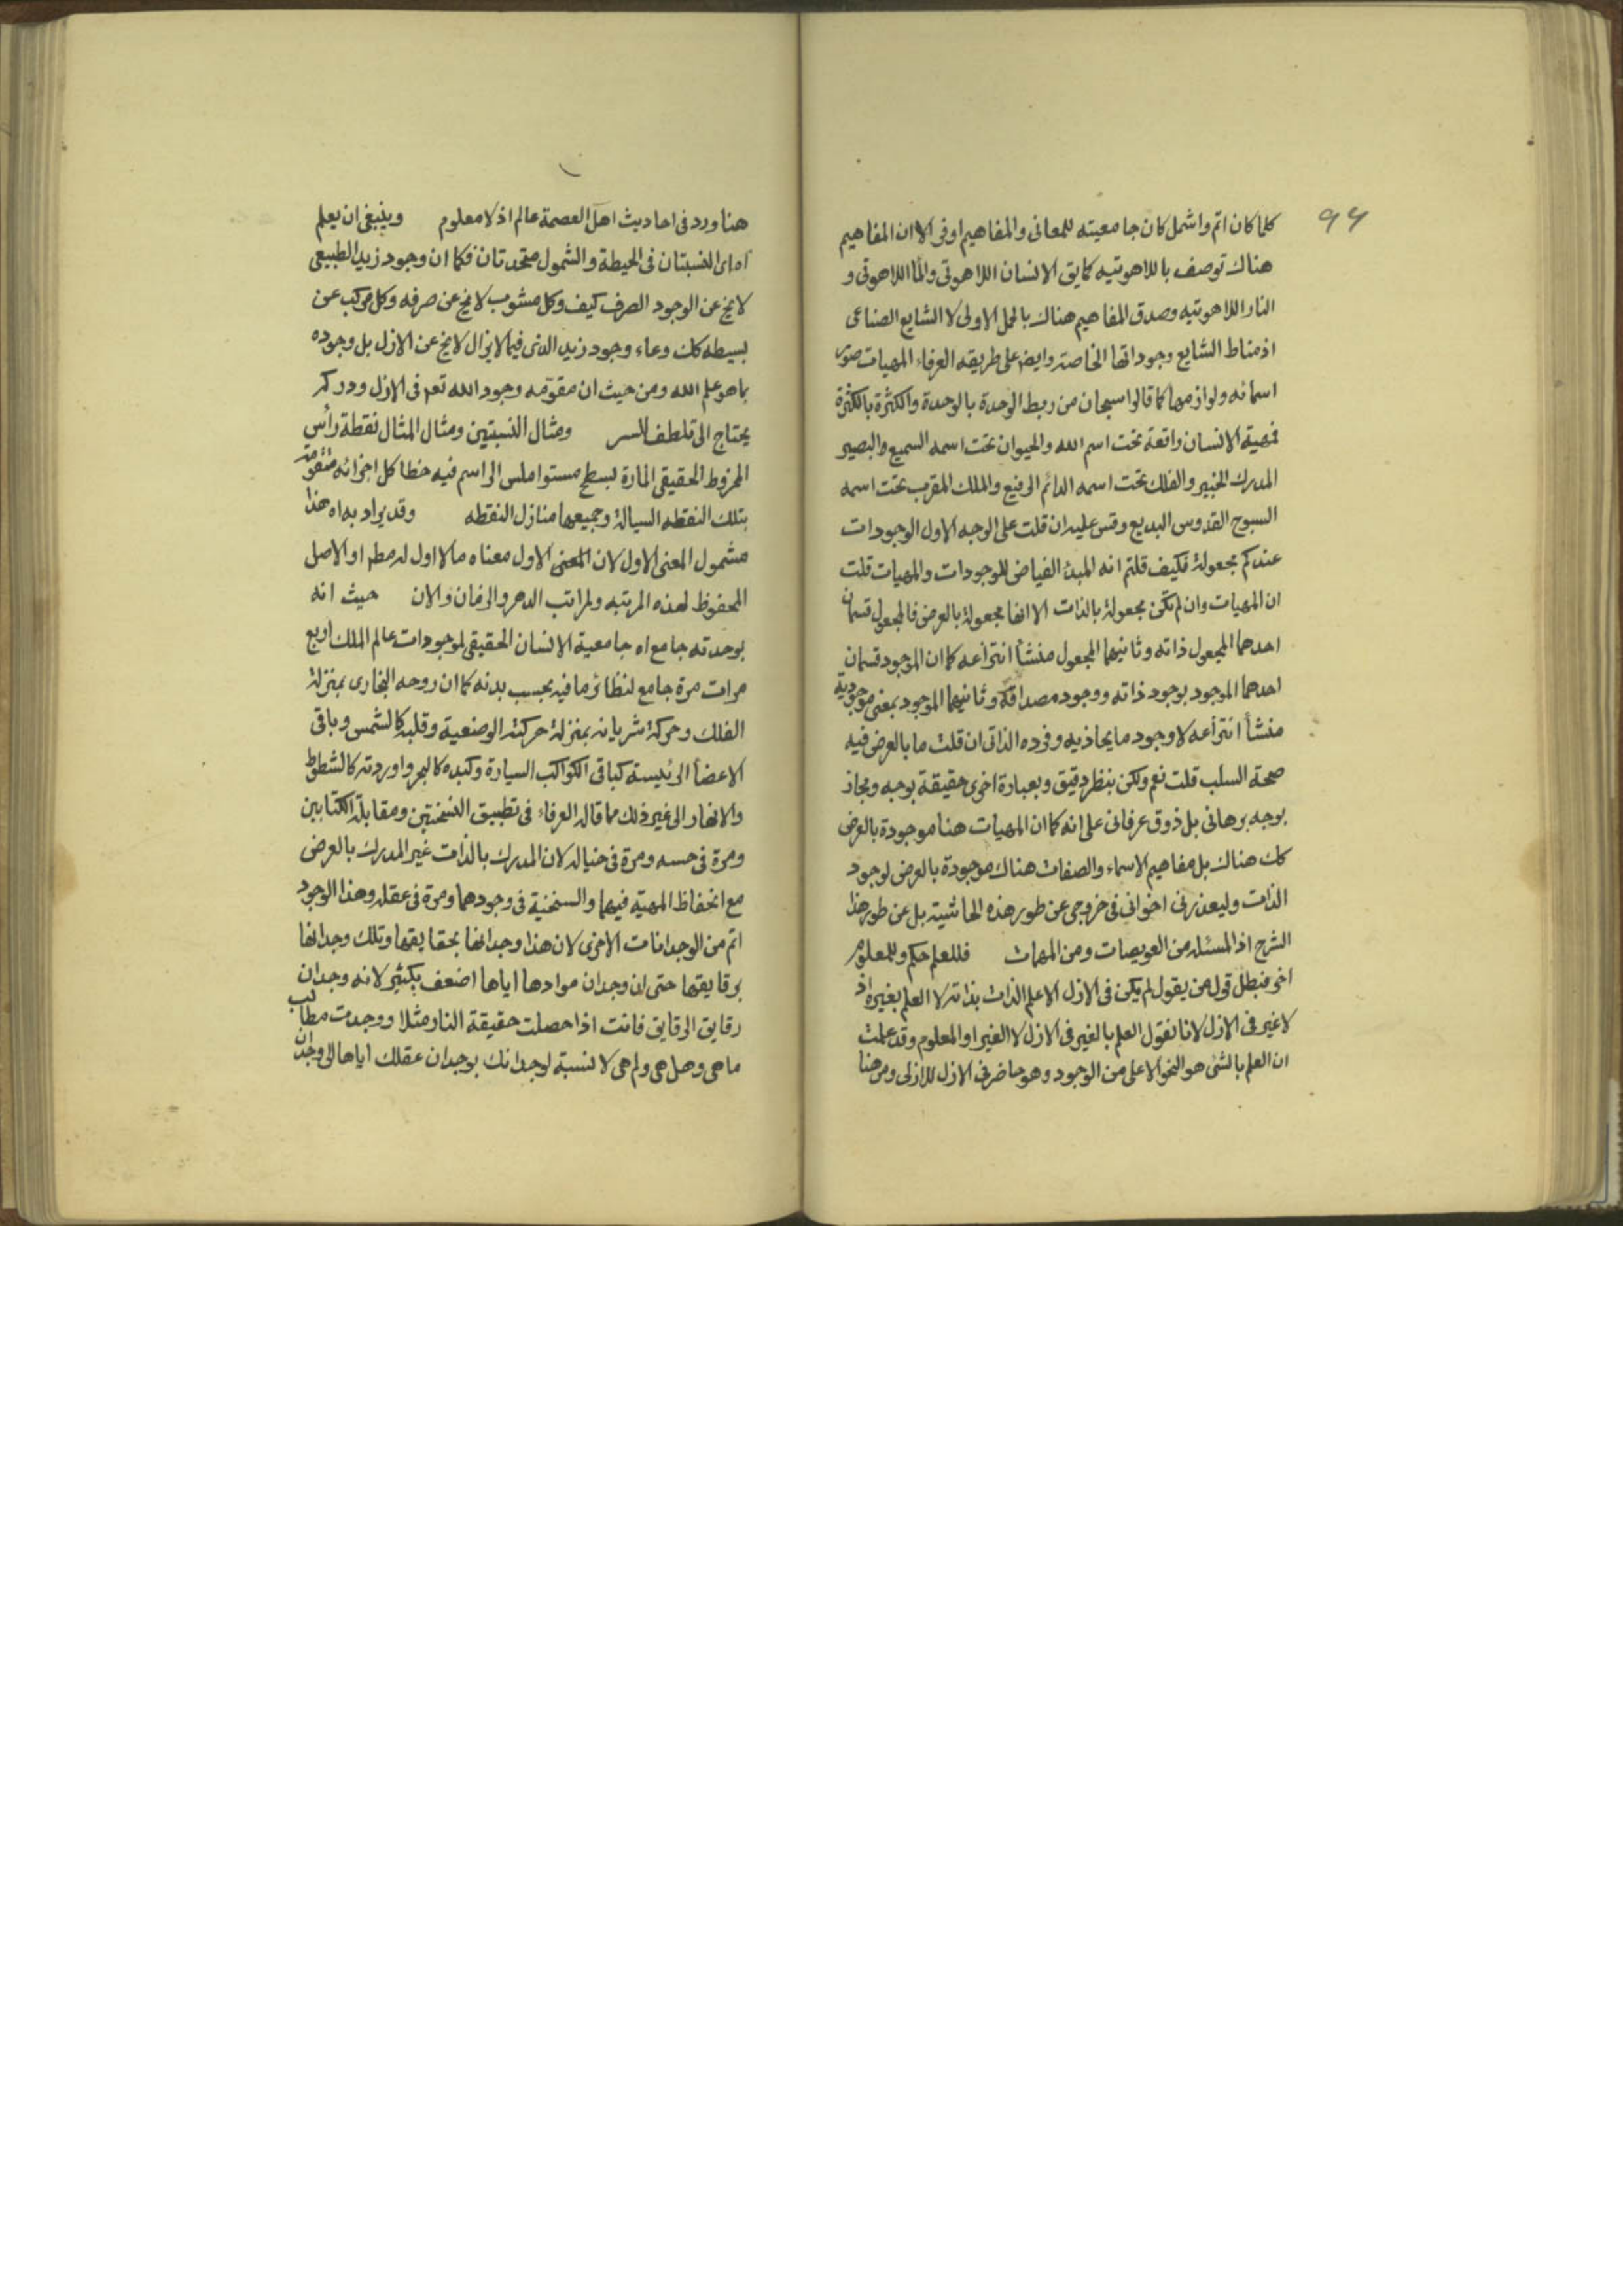 ۹۴
كلما كان اتم واشمل كان جامعيته للمعانى والمفاهيم اوفى الا ان المفاهيم
هناك توصف باللاهوتيه كمايق الانسان اللاهوتى والماا اللاهوتى و
النار اللاهوتيه وصدق المفاهيم هناك بالحمل الاولى لا الشايع الصناعى
اذ مناط الشايع وجوداتها الخاصة وايض على طريقه العرفاء المهيات صور
اسمائه ولوازمها كما قالوا سبحان من ربط الوحدة بالوحدة والكثرة بالكثرة
فمهية الانسان واقعة تحت اسم الله والحيوان تحت اسمه السميع والبصير
المدرك الخبير والفلك تحت اسمه الدائم الرفيع والملك المقرب تحت اسمه
السبوح القدوس البديع وقس عليه ان قلت على الوجه الاول الوجودات
عندكم مجعولة فكيف قلتم انه المبدء الفياض للوجودات والمهيات قلت
ان المهيات وان لم تكن مجعولة بالذات الا انها مجعولة بالعرض فالمجعول قسمان
احدهما المجعول ذاته وثانيهما المجعول منشأ انتزاعه كما ان الموجود قسمان
احدهما الموجود بوجود ذاته ووجود مصداقه وثانيهما الموجود بمعنى موجودية
منشأ انتزاعه لا وجود ما يحاذيه وفرده الذاتى ان قلت ما بالعرض فيه
صحة السلب قلت نعم ولكن بنظر دقيق وبعبارة اخرى حقيقة بوجه ومجاز
بوجه برهانى بل ذوق عرفانى على انه كما ان المهيات هنا موجودة بالعرض
كك هناك بل مفاهيم الاسماء والصفات هناك موجودة بالعرض لوجود
الذات وليعذرنى اخوانى فى خروجى عن طور هذه الحاشية بل عن طور هذا
الشرح اذ المسئله من العويصات ومن المهمات فللعلم حكم وللمعلوم
اخر فبطل قول من يقول لم يكن فى الازل الا علم الذات بذاته لا العلم بغيره اذ
لا غير فى الازل لانا نقول العلم بالغير فى الازل لا الغير او المعلوم وقد علمت
ان العلم بالشئ هو النحو الاعلى من الوجود وهو حاضر فى الازل للازلى ومن هنا
هنا ورد فى احاديث اهل العصمة عالم اذ لا معلوم وينبغى ان يعلم
اه اى النسبتان فى الحيطة والشمول متحدتان فكما ان وجود زيد الطبيعى
لايخ عن الوجود الصرف كيف وكل مشوب لايخ عن صرفه وكل مركب عن
بسيطه كك وعاء وجود زيد الذى فيما لايزال لايخ عن الازل بل وجوده
بما هو علم الله ومن حيث ان مقومه وجود الله تعم فى الازل ودركم
يحتاج الى تلطف للسر ومثال النسبتين ومثال المثال نقطة رأس
المخروط الحقيقى المارة بسطح مستو املس الراسم فيه خطا كل اجزائه متقومة
بتلك النقطه السيالة وجميعها منازل النقطه وقد يراد به اه هذا
مشمول المعنى الاول لان المعنى الاول معناه ما لا اول له مطم او الاصل
المحفوظ لهذه المرتبه ولمراتب الدهر والزمان والان حيث انه
بوحدته جامع اه جامعية الانسان الحقيقى لموجودات عالم الملك اربع
مرات مرة جامع لنظائر ما فيه بحسب بدنه كما ان روحه البخارى بمنزلة
الفلك وحركة شريانه بمنزلة حركته الوضعية وقلبه كالشمس وباقى
الاعضأ الرئيسة كباقى الكواكب السيارة وكبده كالبحر واوردته كالشطوط
والانهار الى غير ذلك مما قاله العرفاء فى تطبيق النسختين ومقابلة الكتابين
ومرة فى حسه ومرة فى خياله لان المدرك بالذات غير المدرك بالعرض
مع انحفاظ المهية فيهما والسنخية فى وجودهما ومرة فى عقله وهذا الوجود
اتم من الوجدانات الاخرى لان هذا وجدانها بحقايقها وتلك وجدانها
برقايقها حتى ان وجدان موادها اياها اضعف بكثير لانه وجدان
رقايق الرقايق فانت اذا حصلت حقيقة النار مثلا ووجدت مطالب
ما هى وهل هى ولم هى لا نسبة لوجدانك بوجدان عقلك اياها الى وجدان